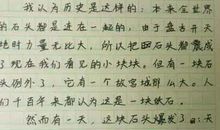 我认为历史是这样的：本来全世界
的石头都是连在一起的，由于盘古开天
地时力量无比大，所以把石头都震成
了现在我们看见的小块块。但有一块石
头例外了，它有一个故宫城那么大。人
们千百年来都认为这是一块妖石。
然而有一天，这块石头爆发了